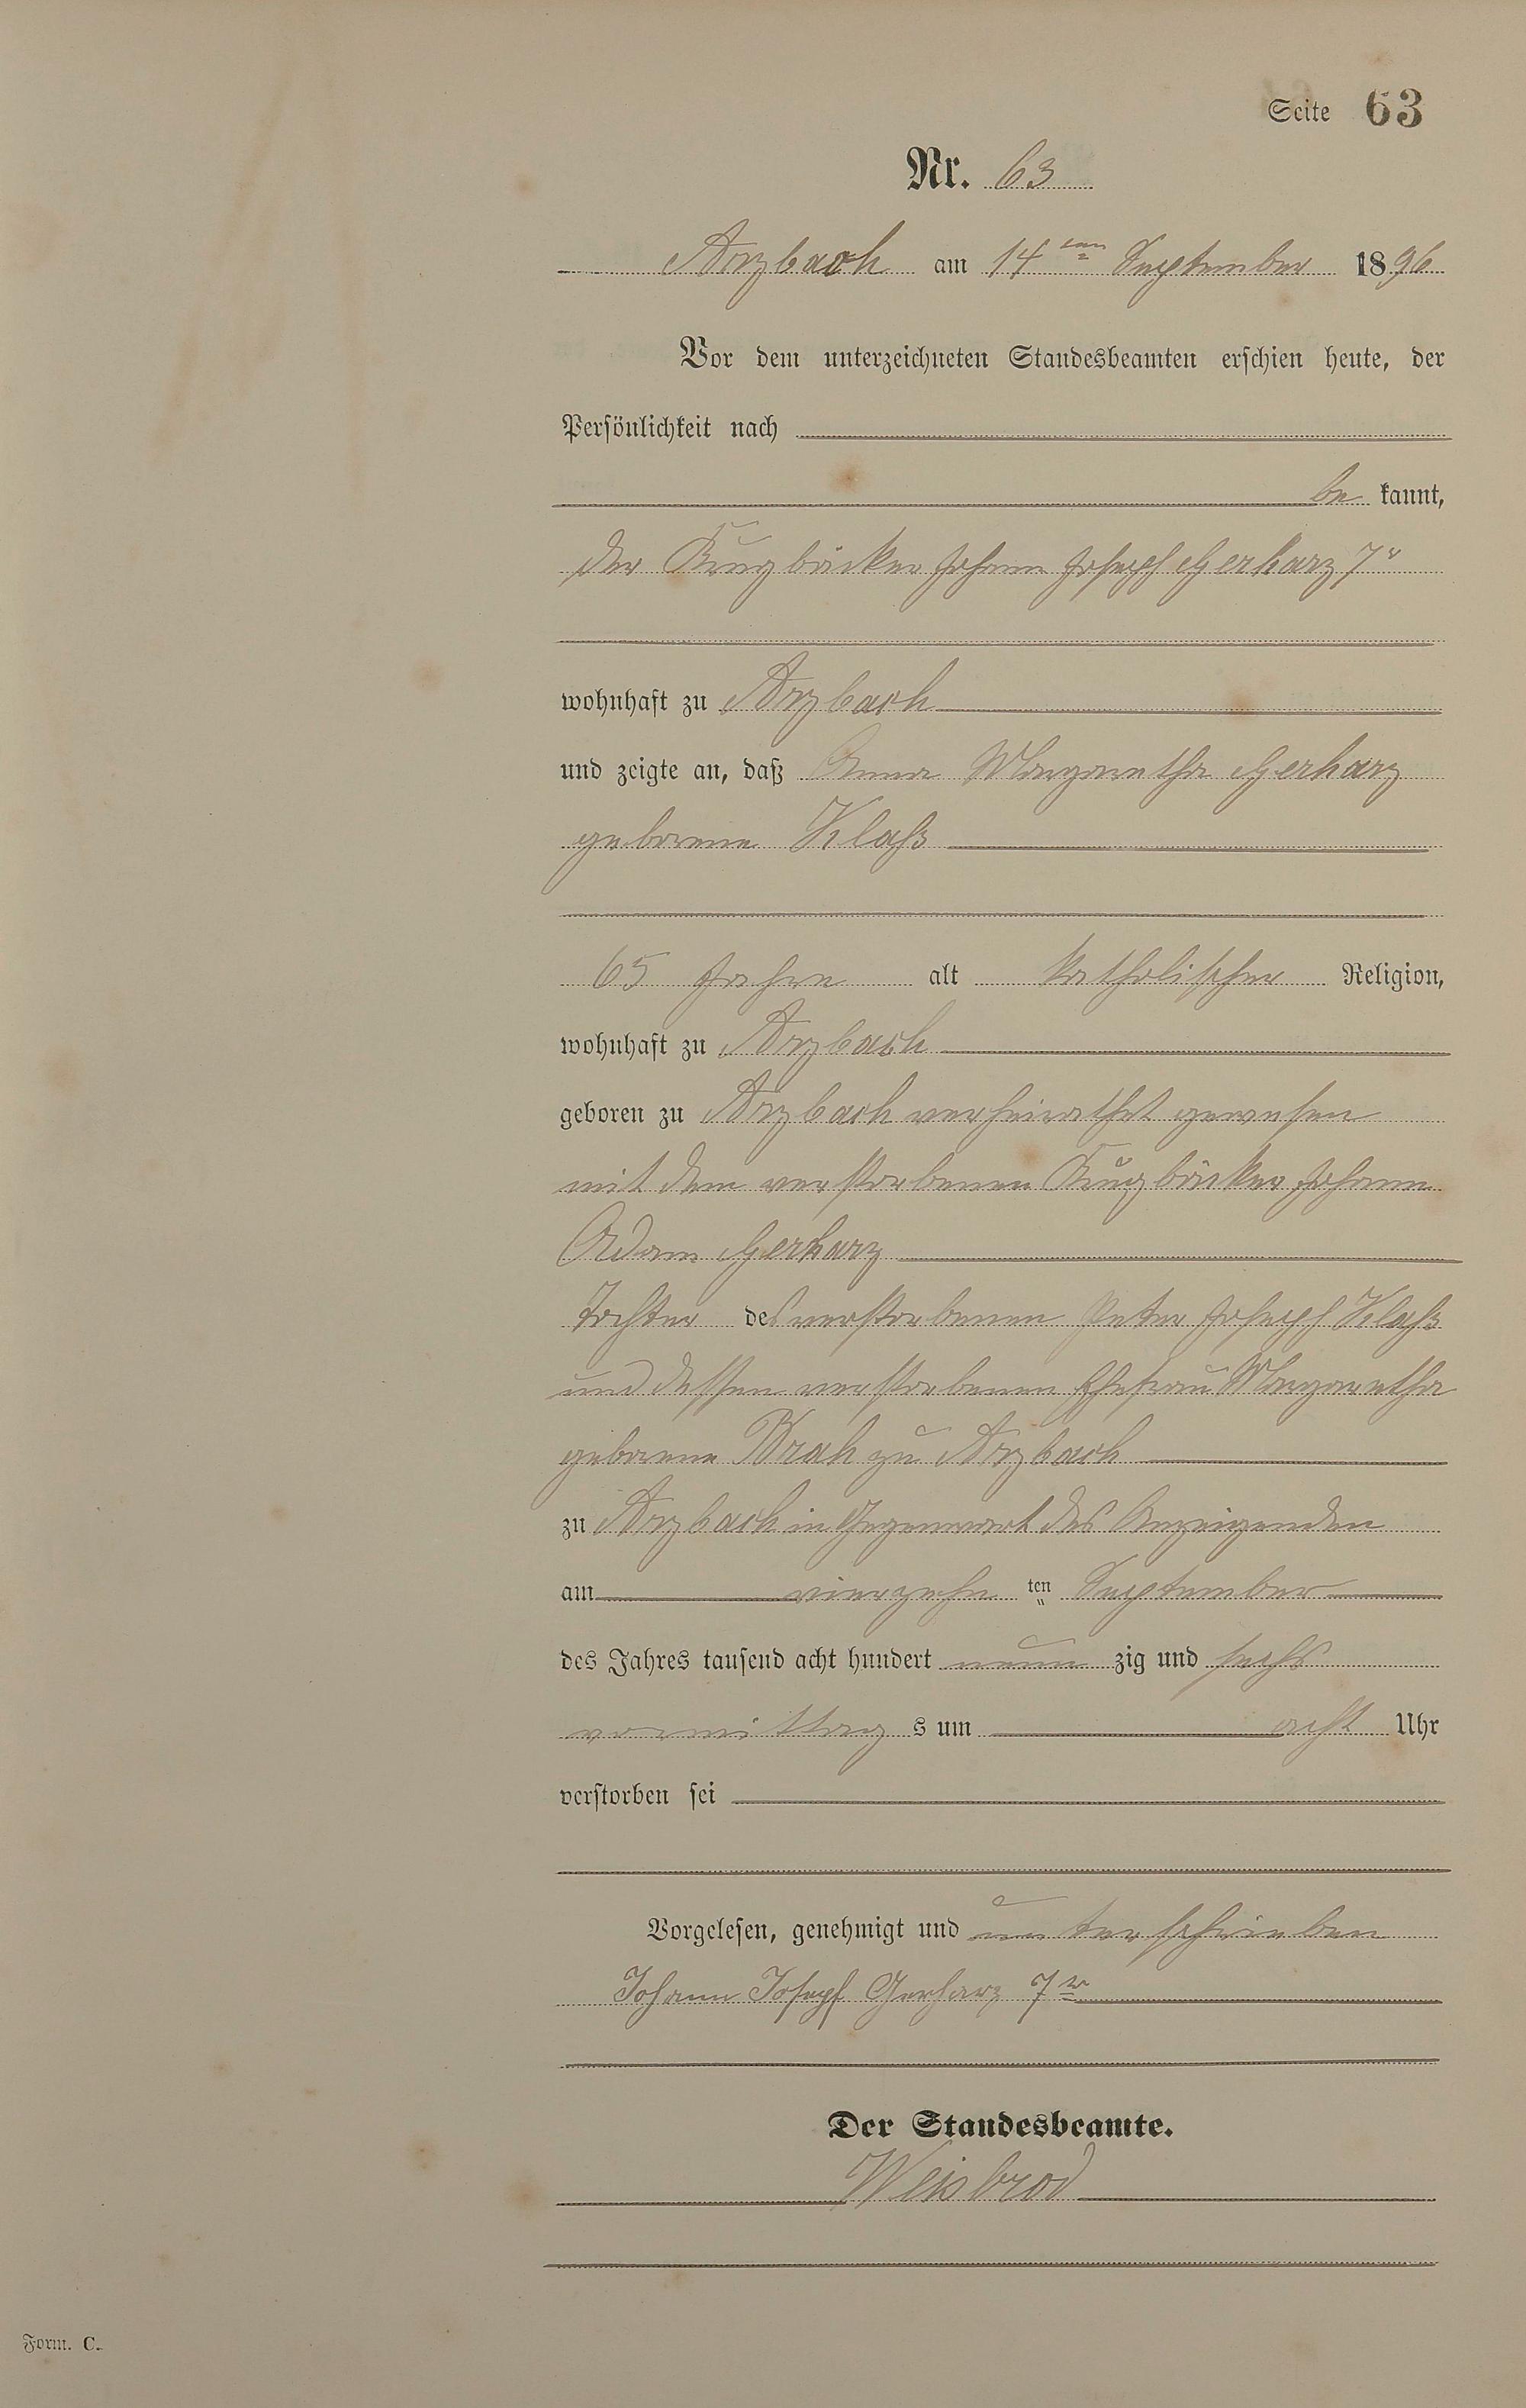 Seite 63
Nr. 63
Arzbach am 14ten September 1896
Vor dem unterzeichneten Standesbeamten erschien heute, der
Persönlichkeit nach
be kannt,
der Krugbäcker Johann Joseph Gerharz 7r
wohnhaft zu Arzbach
und zeigte an, daß Anna Margaretha Gerharz
geborene Klaß
65 Jahre alt katholischer Religion,
wohnhaft zu Arzbach
geboren zu Arzbach verheirathet gewesen
mit dem verstorbenen Krugbäcker Johann
Adam Gerharz
Tochter des verstorbenen Peter Joseph Klaß
und dessen verstorbenen Ehefrau Margaretha
geborene Brah zu Arzbach
zu Arzbach in Gegenwart des Anzeigenden
am vierzehn ten September
des Jahres tausend acht hundert neun zig und sechs
vormittag s um acht Uhr
verstorben sei
Vorgelesen, genehmigt und unterschrieben
Johann Joseph Gerharz 7r
Der Standesbeamte.
Weisbrod
Form. C.